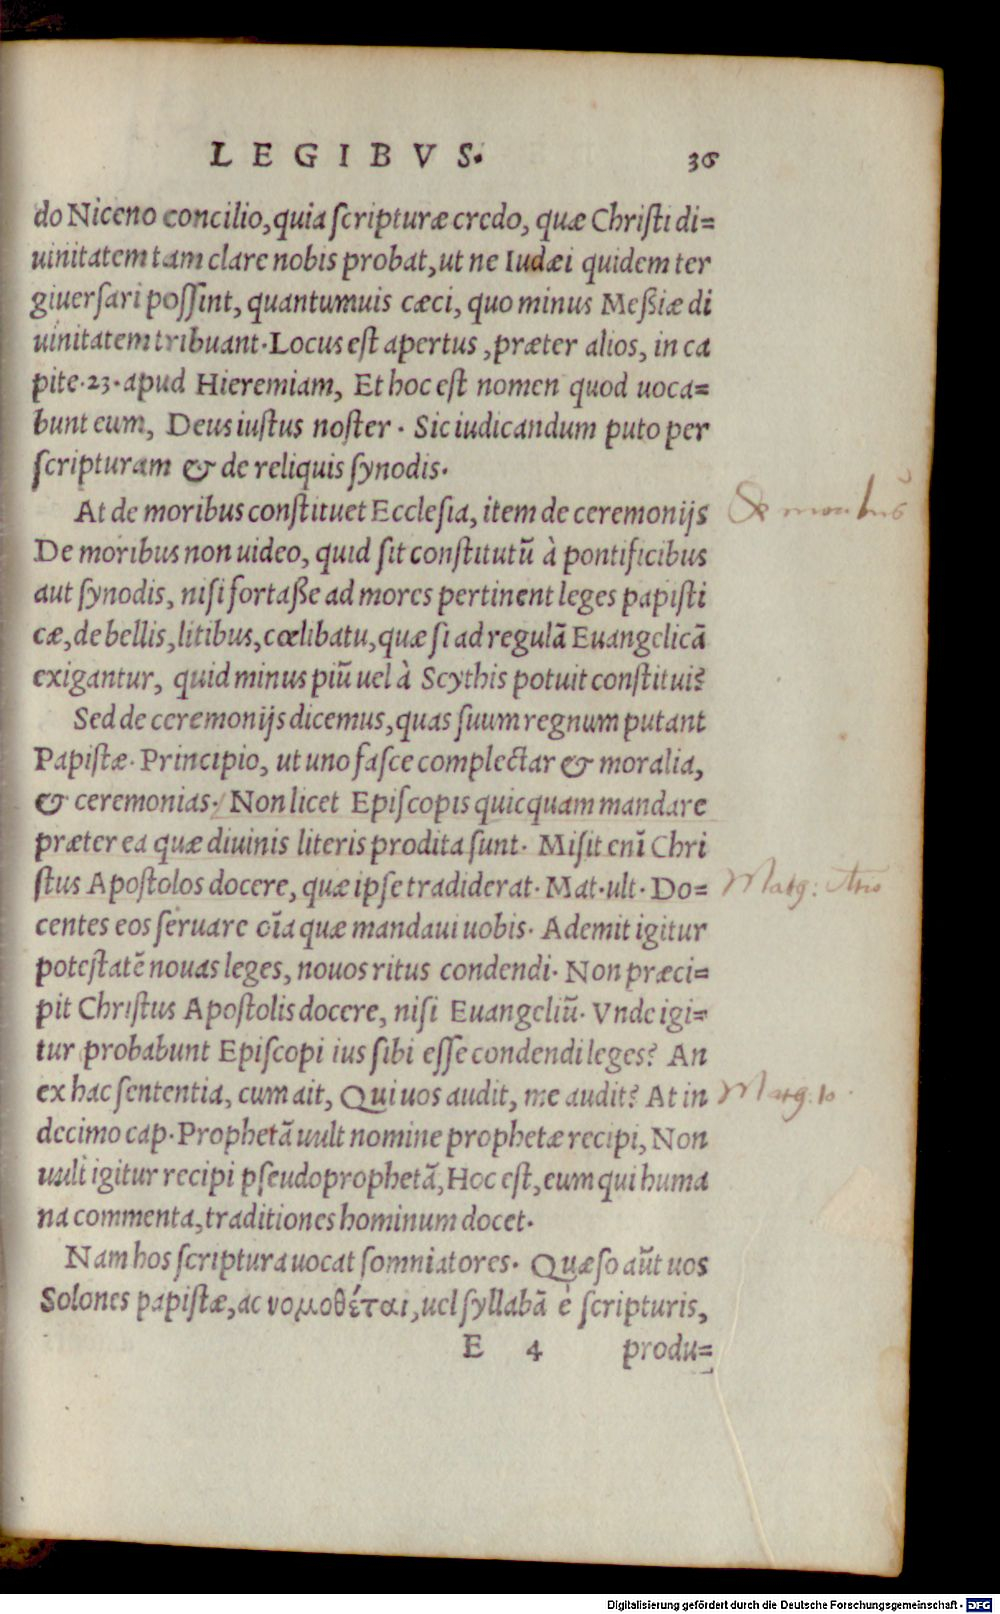 LEGIBVS. 36
do Niceno concilio, quia scripturæ credo, quæ Christi di=
uinitatem tam clare nobis probat, ut ne Iudæi quidem ter
giuersari possint, quantumuis cæci, quo minus Meßiæ di
uinitatem tribuant. Locus est apertus, præter alios, in ca
pite. 23. apud Hieremiam, Et hoc est nomen quod uoca=
bunt eum, Deus iustus noster. Sic iudicandum puto per
scripturam & de reliquis synodis.
At de moribus constituet Ecclesia, item de ceremonijs
De moribus
De moribus non uideo, quid sit constitutũ à pontificibus
aut synodis, nisi fortaße ad mores pertinent leges papisti
cæ, de bellis, litibus, cœlibatu, quæ si ad regulã Euangelicã
exigantur, quid minus piũ uel à Scythis potuit constitui?
Sed de ceremonijs dicemus, quas suum regnum putant
Papistæ. Principio, ut uno fasce complectar & moralia,
& ceremonias. Non licet Episcopis quicquam mandare
præter ea quæ diuinis literis prodita sunt. Misit enĩ Chri
stus Apostolos docere, quæ ipse tradiderat. Mat. ult. Do=
centes eos seruare oĩa quæ mandaui uobis. Ademit igitur
potestatẽ nouas leges, nouos ritus condendi. Non præci=
pit Christus Apostolis docere, nisi Euangeliũ. Vnde igi=
tur probabunt Episcopi ius sibi esse condendi leges? An
ex hac sententia, cum ait, Qui uos audit, me audit? At in
decimo cap. Prophetã uult nomine prophetæ recipi, Non
uult igitur recipi pseudoprophetã, Hoc est, eum qui huma
na commenta, traditiones hominum docet.
Nam hos scriptura uocat somniatores. Quæso aũt uos
Solones papistæ, ac νομοθέται, uel syllabã è scripturis,
E 4 produ=
Digitalisierung gefördert durch die Deutsche Forschungsgemeinschaft - DFG